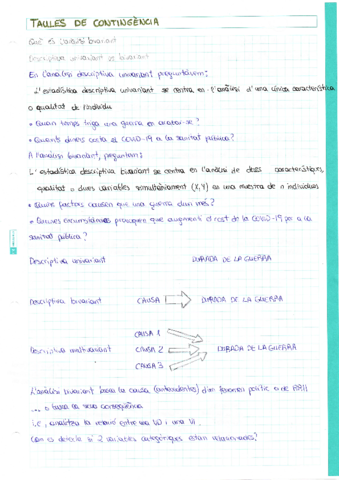 TAULES DE CONTINGÈNCIA
Què és l'anàlisi bivariant
Descriptiva univariant vs bivariant
En l'anàlisi descriptiva univariant preguntàvem:
L'estadística descriptiva univariant se centra en l'anàlisi d'una única característica
o qualitat de l'individu
• Quan temps triga una guerra en acabar-se?
• Quants diners costa el COVID-19 a la sanitat pública?
A l'anàlisi bivariant, preguntem:
L'estadística descriptiva bivariant se centra en l'anàlisi de dues característiques,
qualitat o dues variables simultàniament (X,Y) en una mostra de n individus
• Quins factors causen que una guerra duri més?
• Quines circumstàncies provoquen que augmenti el cost de la COVID-19 a la
sanitat pública?
Descriptiva univariant DURADA DE LA GUERRA
Descriptiva bivariant CAUSA DURADA DE LA GUERRA
CAUSA 1
Descriptiva multivariant CAUSA 2 DURADA DE LA GUERRA
CAUSA 3
L'anàlisi bivariant busca la causa (antecedents) d'un fenomen polític o de
... o busca la seva conseqüència
i.e, analitza la relació entre una VD i una VI
Com a detectar si 2 variables categòriques estan relacionades?